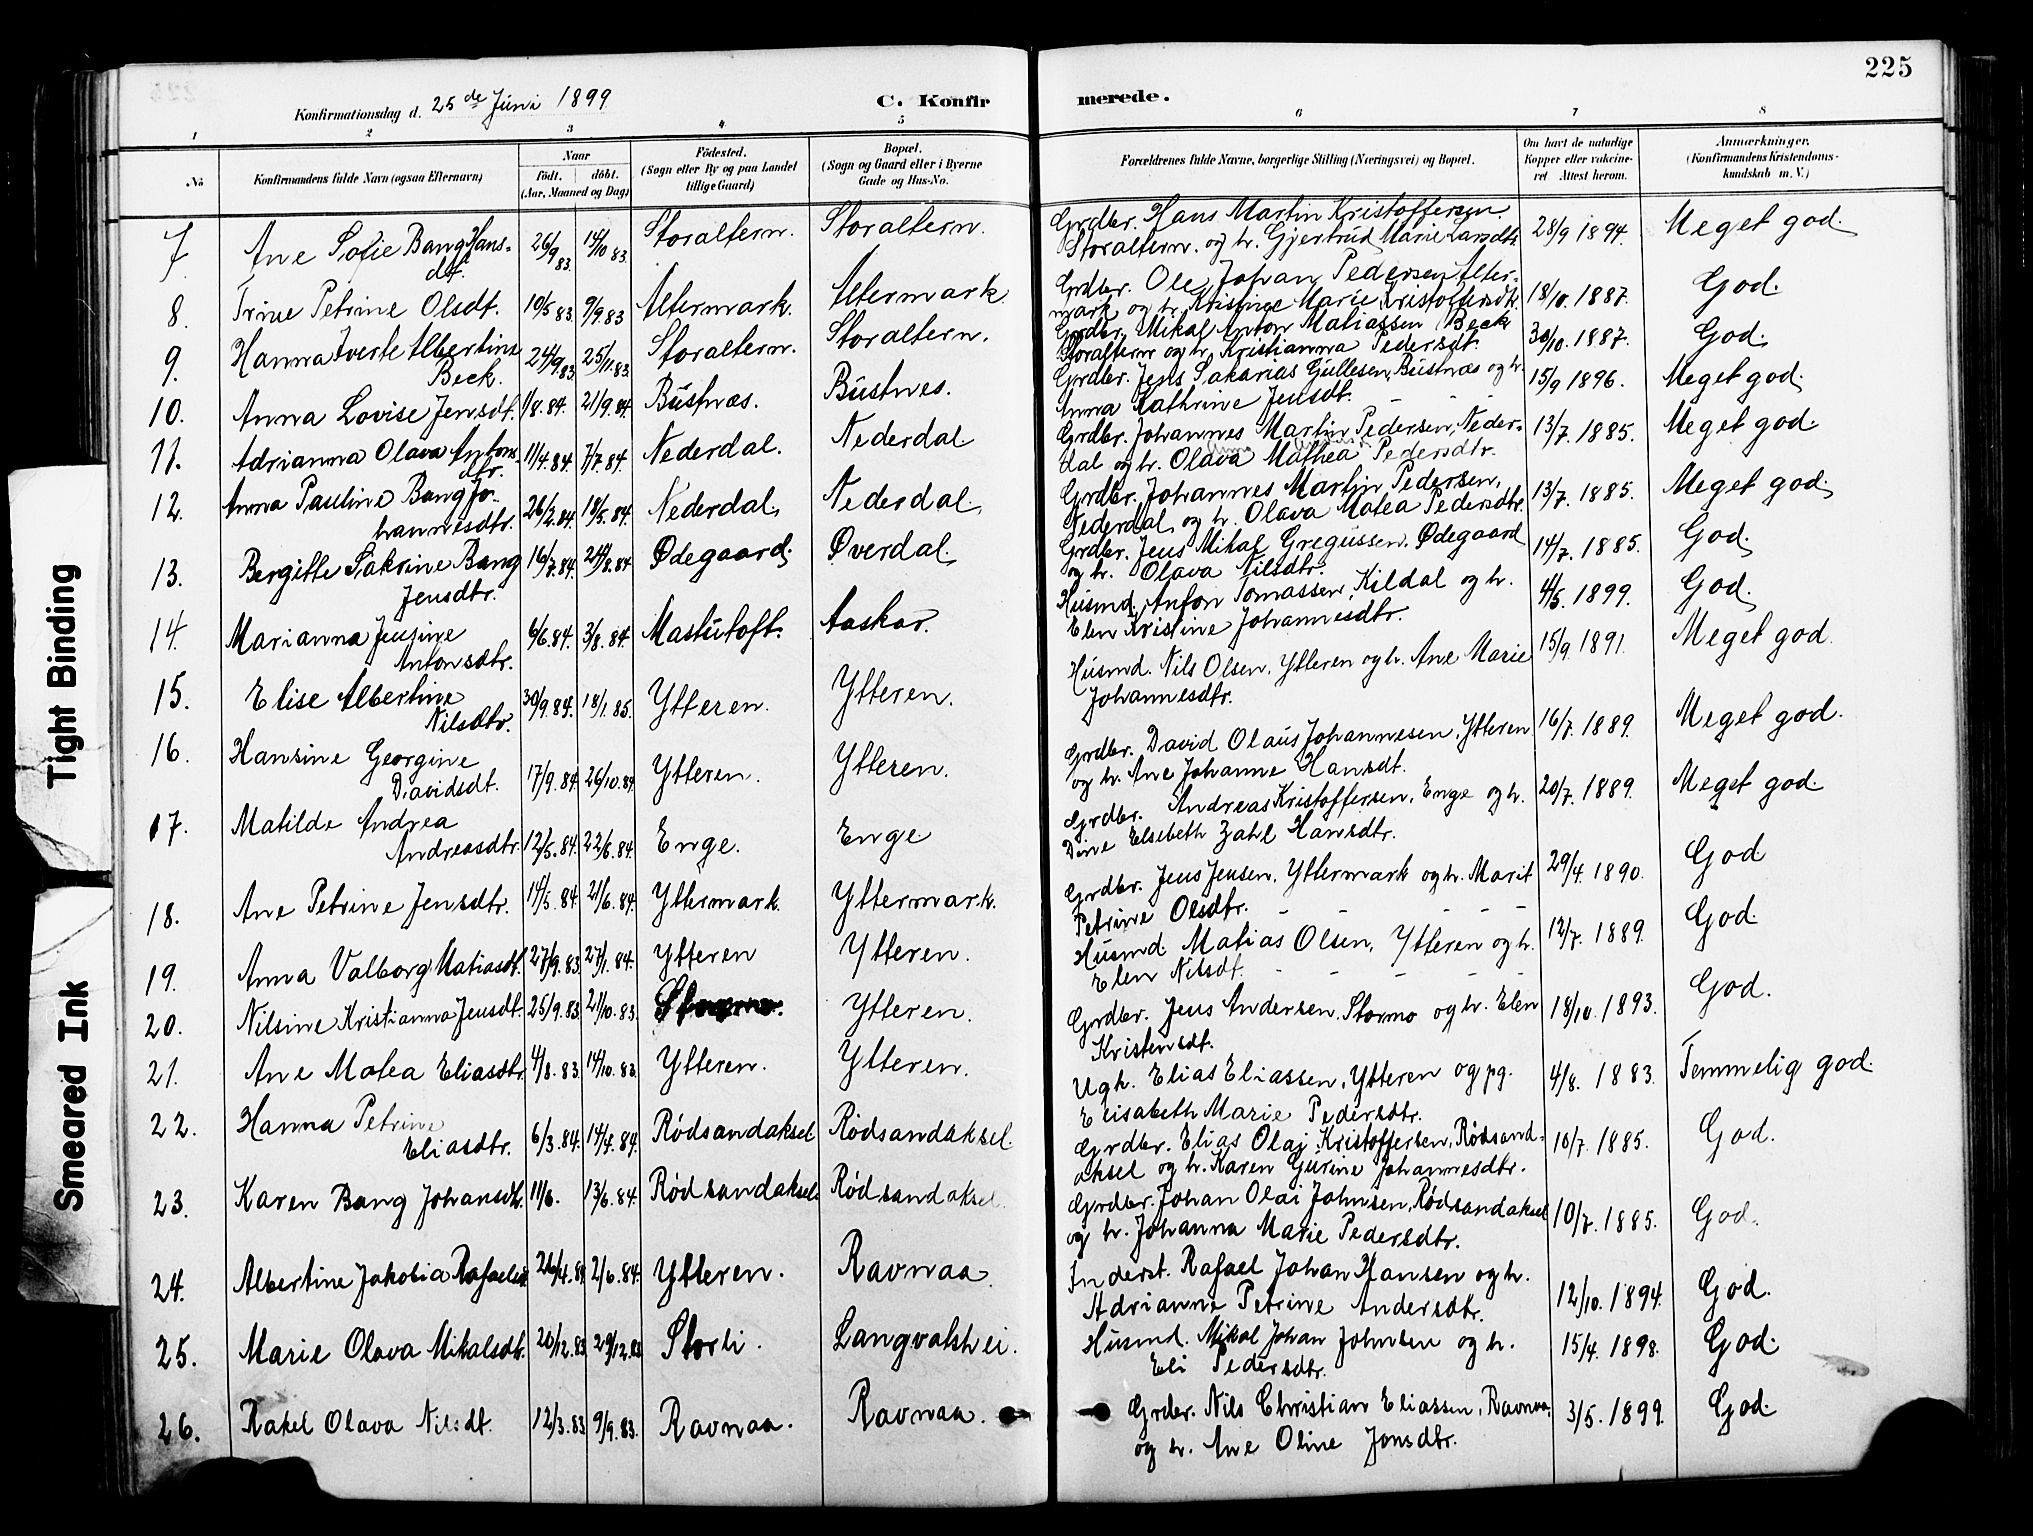 225
Konfirmationsdag d. 25de Juni 1899
C. Konfirmerede.
1 2 3 4 5 6 7 8
No
Konfirmandens fulde Navn (ogsaa Efternavn)
Naar
födt. döbt.
(Aar, Maaned og Dag)
Födested.
(Sogn eller By og paa Landet
tillige Gaard)
Bopæl.
(Sogn og Gaard eller i Byerne
Gade og Hus-No.
Forældrenes fulde Navne, borgerlige Stilling (Næringsvei) og Bopæl.
Om havt de naturlige
Kopper eller vakcine-
ret Attest herom.
Anmærkninger.
(Konfirmandens Kristendoms-
kundskab m. V.)
7 Ane Sofie Bang Hans- 26/9 83. 14/10 83. Storaltern. Storaltern. Grdbr. Hans Martin Kristoffersen 28/9 1894. Meget god.
dt. Storaltern. og h. Gjertrud Marie Larsdtr
8. Trine Petrine Olsdt. 10/5 83. 9/9.83 Altermark. Altermark Grdbr. Ole Johan Pedersen Alter- 18/10. 1887. God.
mark og h. Kristine Marie Kristoffersdtr.
9. Hanna Iverte Albertine 24/9.83. 25/11.83. Storaltern. Storaltern. Grdbr. Mikal Anton Matiassen Beck 30/10. 1887. God.
Beck. Storaltern og h. Kristianna Pedersdt.
10. Anna Lovise Jensdt. 1/8.84. 21/9.84. Bústnæs. Bústnes. Grdbr. Jens Sakarias Gullesen, Bústnæs og h. 15/9 1896. Meget god.
Anna Kathrine Jensdt. - - -
11. Adrianna Olava Antons- 11/4.84. 7/7.84. Nederdal. Nederdal Grdbr. Johannes Martin Pedersen, Neder- 13/7. 1885. Meget god.
dtr. dal og h. Olava Mathea Pedersdtr.
12. Anna Pauline Bang Jo- 26/2.84. 18/5.84. Nederdal. Nederdal. Grdbr. Johannes Martin Pedersen, 13/7. 1885. Meget god.
hannesdtr. Nederdal og h. Olava Matea Pedersdtr.
13. Bergitte Sakrine Bang 16/7.84. 24/8.84 Ødegaard. Øverdal. Grdbr. Jens Mikal Gregussen. Ødegaard 14/7. 1885. God.
Jensdtr. og h. Olava Nilsdtr.
14. Marianna Jensine 6/6.84. 3/8.84. Mastutoft. Aaskar. Husmd. Anton Tomassen, Kildal og h. 4/5. 1899. God.
Antonsdtr. Elen Kristine Johannesdtr.
15. Elise Albertine 30/9.84. 18/1.85. Ytteren. Ytteren. Husmd. Nils Olsen. Ytteren og h. Ane Marie 15/9 1891. Meget god.
Nilsdtr. Johannesdtr.
16. Hansine Georgine 17/9.84 26/10.84. Ytteren. Ytteren. Grdbr. David Olaus Johannesen. Ytteren 16/7. 1889. Meget god.
Davidsdt. og h. Ane Johanne Hansdt.
17. Matilde Andrea 12/5.84. 22/6.84. Enge. Enge Grdbr. Andreas Kristoffersen, Enge og h. 20/7. 1889. Meget god.
Andreasdtr. Dine Elsebeth Zahl Hansdtr.
18. Ane Petrine Jensdtr. 14/5.84 21/6.84. Yttermark. Yttermark. Grdbr. Jens Jensen. Yttermark og h. Marit 29/4. 1890. God
Petrine Olsdtr. - - - -
19. Anna Valborg Matiasdt. 27/9.83. 27/1.84. Ytteren Ytteren. Husmd. Matias Olsen, Ytteren og h. 12/7. 1889. God.
Elen Nilsdt. - - - -
20. Nilsine Kristianna Jensdt. 25/9.83. 21/10.83. Ytteren. Grdbr. Jens Andersen, Stormo og h. Elen 18/10. 1893. God.
Kristensdt.
21. Ane Matea Eliasdtr. 4/8.83. 14/10.83. Ytteren. Ytteren. Ugh. Elias Eliassen, Ytteren og pg. 4/8. 1883. Temmelig god.
Elisabeth Marie Pedersdtr.
22. Hanna Petrine 6/3.84. 14/4.84. Rødsandaksel Rødsandaksel. Grdbr. Elias Olaj Kristoffersen, Rødsand- 10/7. 1885. God.
Eliasdtr. aksel og h. Karen Gurine Johannesdtr.
23. Karen Bang Johansdt. 11/6. 13/6.84. Rødsandaksel Rødsandaksel. Grdbr. Johan Olai Johnsen, Rødsandaksel 10/7. 1885. God.
og h. Johanna Marie Pedersdtr.
24. Albertine Jakobia Rafaelsd. 26/4.84 2/6.84. Ytteren. Ravnaa. Inderst. Rafael Johan Hansen og h. 12/10. 1894. God.
Adrianne Petrine Andersdtr.
25. Marie Olava Mikalsdtr. 20/12.83 29/12.83 Storli. Langvatshei. Husmd. Mikal Johan Johnsen og h. 15/4. 1898. God.
Eli Pedersdtr.
26. Rakel Olava Nilsdt. 12/3.83 9/9.83. Ravnaa. Ravnaa. Grdbr. Nils Christian Eliassen, Ravnaa, 3/5. 1899. God.
og h. Ane Oline Jonsdtr.
Tight Binding
Smeared Ink